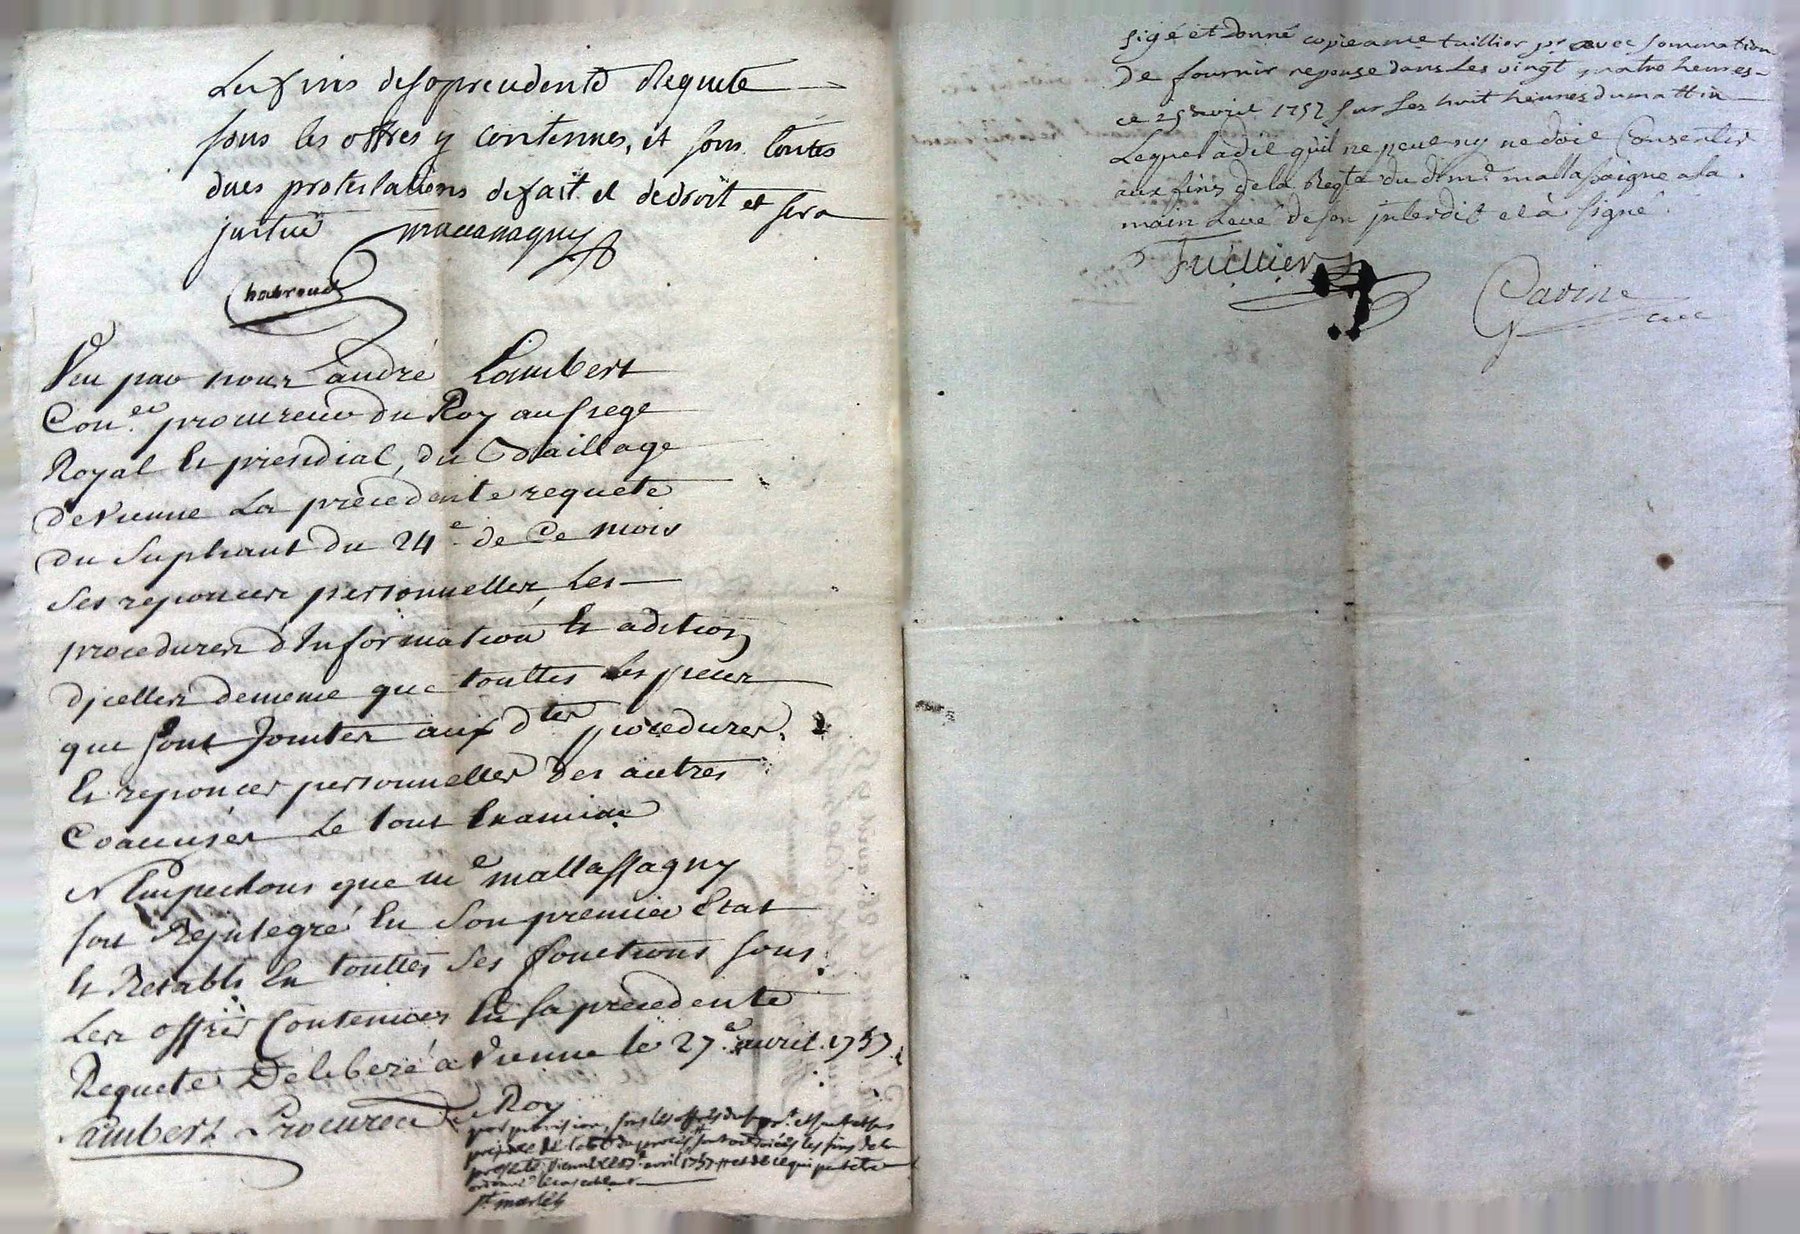 Les fins de sa precedente Requete
sous les offres y contenues, et sous toutes
dues protestations de fait et de droit et sera
justice
Chabroud
Veu par nous andré Lambert
Con.er procureur du Roy au siege
Royal Et presidial, du Bailliage
de vienne La precedente requete
du Supliant du 24e de Ce mois
Ses reponces personnelles, Les
procedures d'Information Et adition
d'jcelles de meme que touttes Les pieces
qui sont Jointes aux dtes procedures,
Et reponces personnelles des autres
Coaccusés Le tout Examiné
N'Empechons que me mallassagny
soit Rejntegré En Son premier Etat
Et Retabli En touttes Ses fonctions sous
Les offres Contenues En sa precedente
Requete Deliberé a vienne le 27e avril 1757
Lambert Procureur du Roy
par provision, sous les offres du
prejudice de l'etat du procès
avril 1757
st martin
sigé et donné copie a me tuillier pr avec sommation
De fournir reponse dans Les vingt quatre heures
ce 25 avril 1757 sur Les huit heures du mattin
Lequel a dit qu'il ne peut ny ne doit Consentir
aux fins de la Reqte du dt me mallassaigne a la
main Levé de son jnterdit et à signé.
Tuillier
Gavine